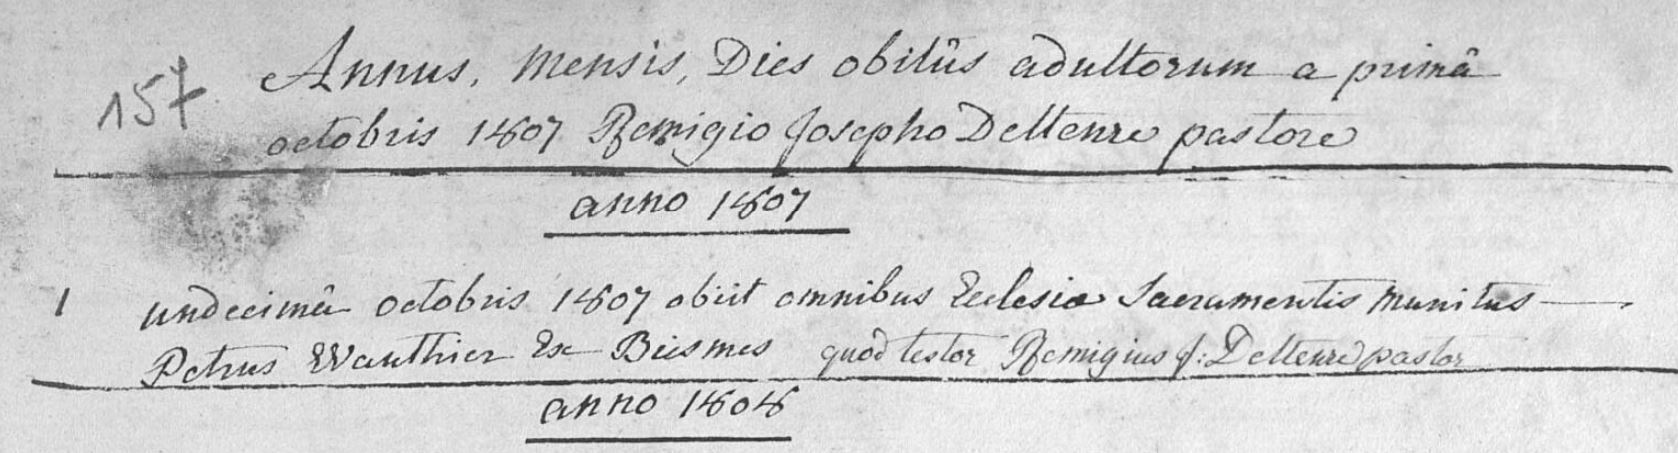 157
Annus, Mensis, Dies obitûs adultorum a primâ
octobris 1807 Remigio Josepho Deltenre pastore
anno 1807
1 undecimâ octobris 1807 obiit omnibus Ecclesia Sacramentis munitus
Petrus Wauthier Ex Biesmes quod testor Remigius J: Deltenre pastor
anno 1808